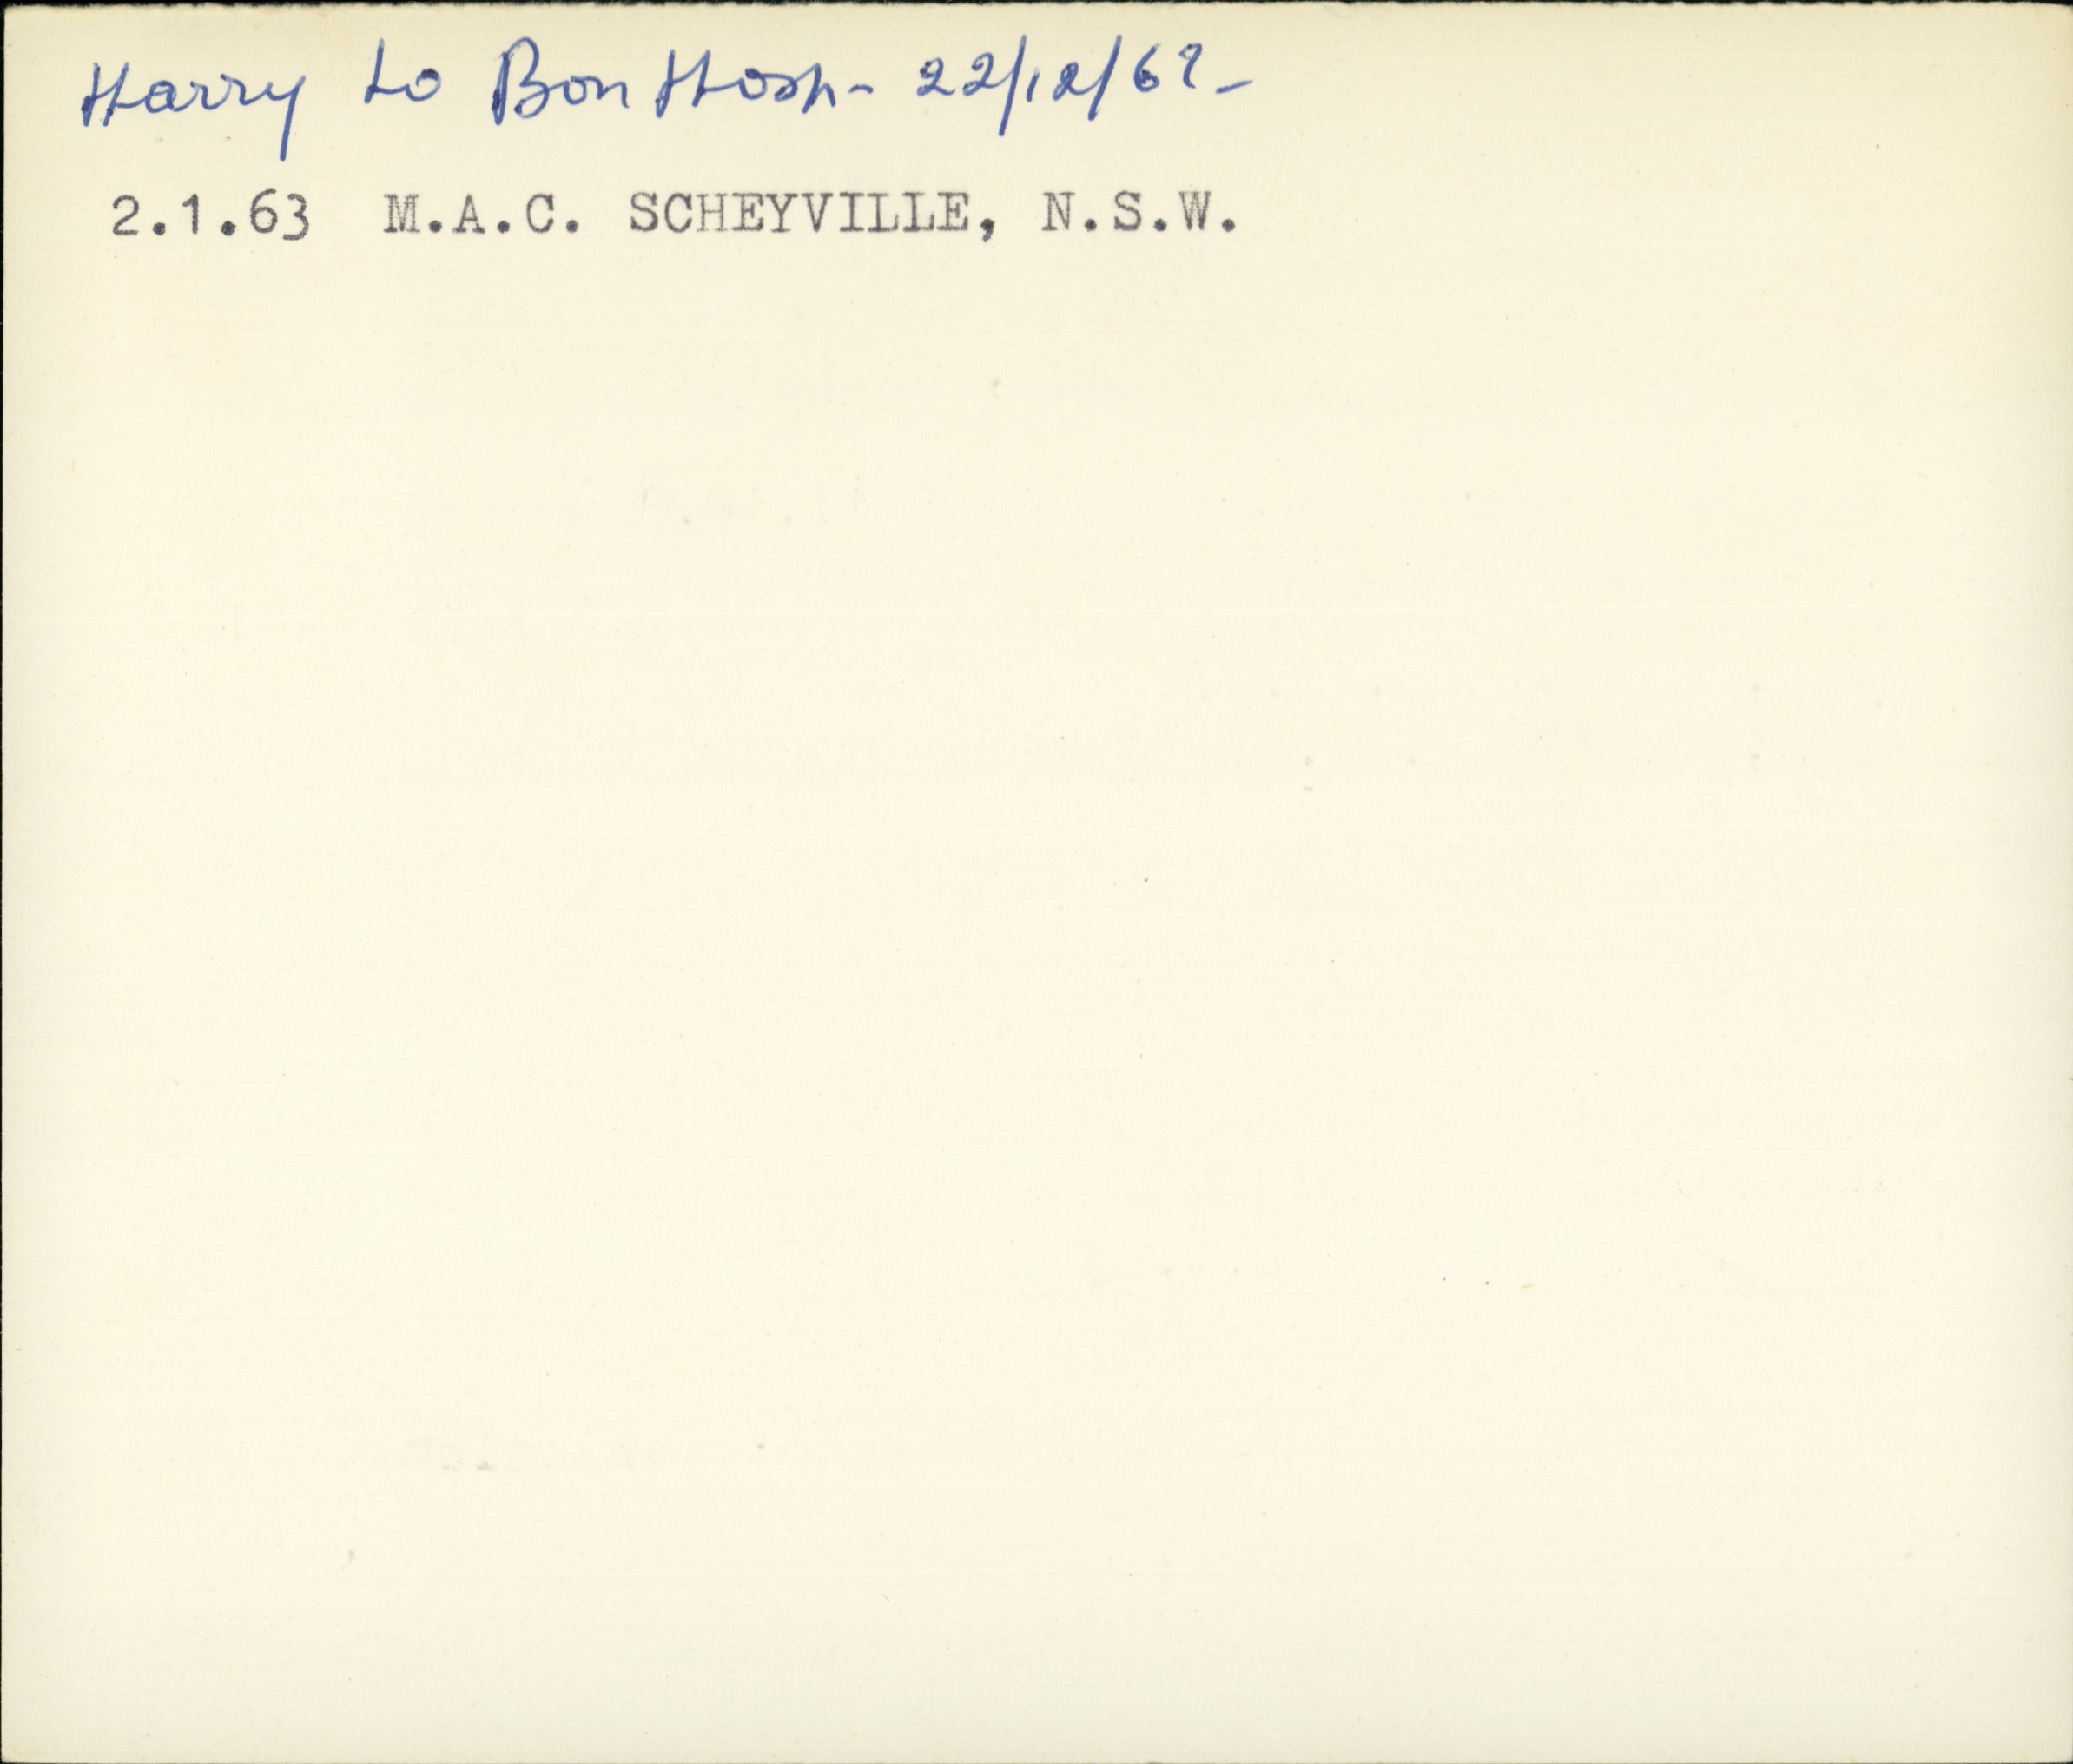 Harry to Bon Hosp - 22/12/62 -
2.1.63 M.A.C. SCHEYVILLE, N.S.W.